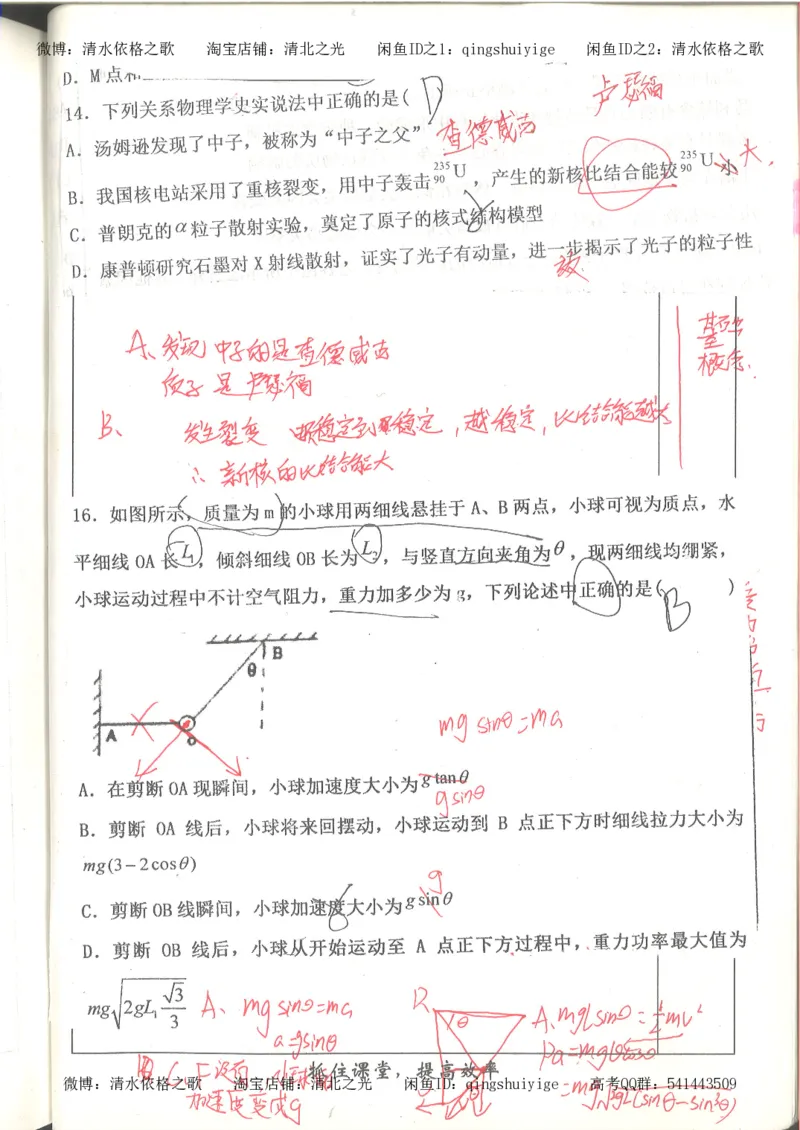 微博：清水依格之歌 淘宝店铺：清北之光 闲鱼ID之1：qingshuiyige 闲鱼ID之2：清水依格之歌
D．M点
14．下列关系物理学史实说法中正确的是( D
卢瑟福
A．汤姆逊发现了中子，被称为“中子之父”
查德威克
B．我国核电站采用了重核裂变，用中子轰击 235 90 U ，产生的新核比结合能较 235 90 U 小
大
C．普朗克的α粒子散射实验，奠定了原子的核式结构模型
D．康普顿研究石墨对 X 射线散射，证实了光子有动量，进一步揭示了光子的粒子性
基础
概念.
A、发现中子的是查德威克
质子是卢瑟福
B、 发生裂变 稳定到更稳定，越稳定，比结合能越大
∴ 新核的比结合能大
16．如图所示，质量为 m 的小球用两细线悬挂于 A、B 两点，小球可视为质点，水
平细线 OA 长 L₁ ，倾斜细线 OB 长为 L₂ ，与竖直方向夹角为θ ，现两细线均绷紧，
小球运动过程中不计空气阻力，重力加多少为 g，下列论述中正确的是( B )
B
θ
A
o
mg sinθ=ma
A．在剪断 OA 现瞬间，小球加速度大小为 g tanθ
gsinθ
B．剪断 OA 线后，小球将来回摆动，小球运动到 B 点正下方时细线拉力大小为
mg(3－2cosθ)
g
C．剪断 OB 线瞬间，小球加速度大小为 g sinθ
D．剪断 OB 线后，小球从开始运动至 A 点正下方过程中，重力功率最大值为
mg√2gL₁ √3/3
A、mg sinθ=ma
a=gsinθ
θ
A、mgLsinθ=½mv²
抓住课堂，提高效率
加速度变成g
微博：清水依格之歌 淘宝店铺：清北之光 闲鱼ID：qingshuiyige 高考QQ群：541443509